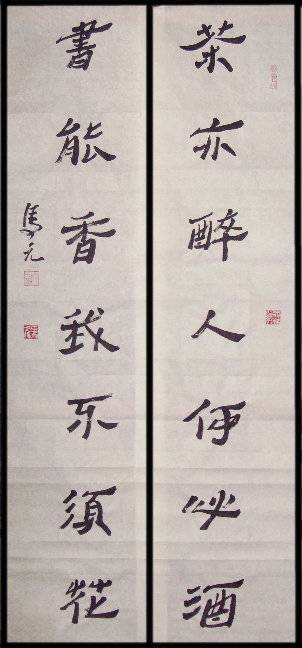 茶亦醉人何必酒
書能香我不須花
馬元